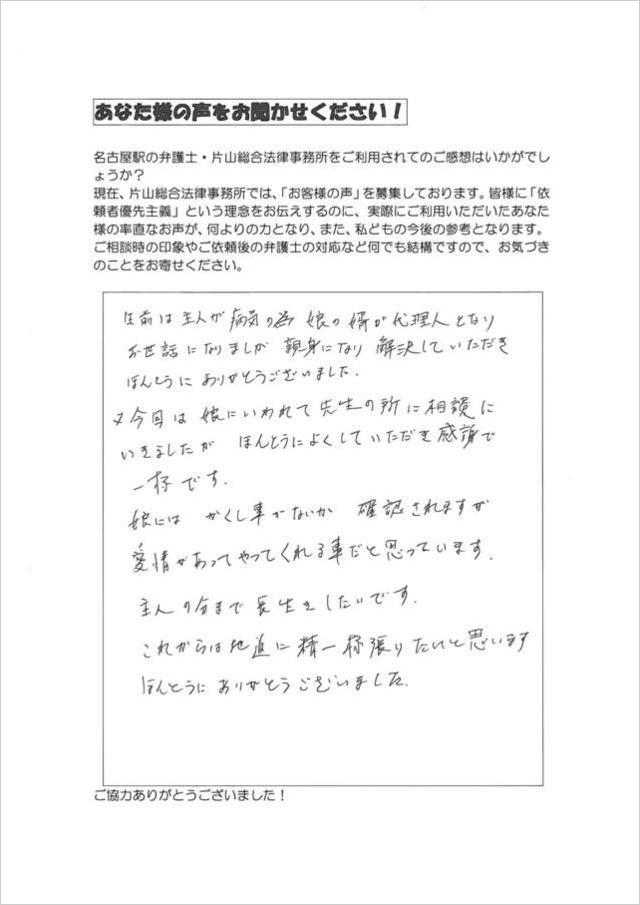 あなた様の声をお聞かせください！
名古屋駅の弁護士・片山総合法律事務所をご利用されてのご感想はいかがでし
ょうか？
現在、片山総合法律事務所では、「お客様の声」を募集しております。皆様に「依
頼者優先主義」という理念をお伝えするのに、実際にご利用いただいたあなた
様の率直なお声が、何よりの力となり、また、私どもの今後の参考となります。
ご相談時の印象やご依頼後の弁護士の対応など何でも結構ですので、お気づき
のことをお寄せください。
生前は主人が病気の為 娘の婿が代理人となり
お世話になりましが 親身になり 解決していただき
ほんとうにありがとうございました.
又今回は娘にいわれて先生の所に相談に
いきましたが ほんとうによくしていただき感謝で
一杯です.
娘には かくし事がないか 確認されますが
愛情があってやってくれる事だと思っています.
主人の分まで長生きしたいです.
これからは地道に精一杯張りたいと思います
ほんとうにありがとうございました.
ご協力ありがとうございました！